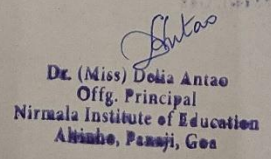 Antao
Dr. (Miss) Delia Antao
Offg. Principal
Nirmala Institute of Education
Altinho, Panaji, Goa